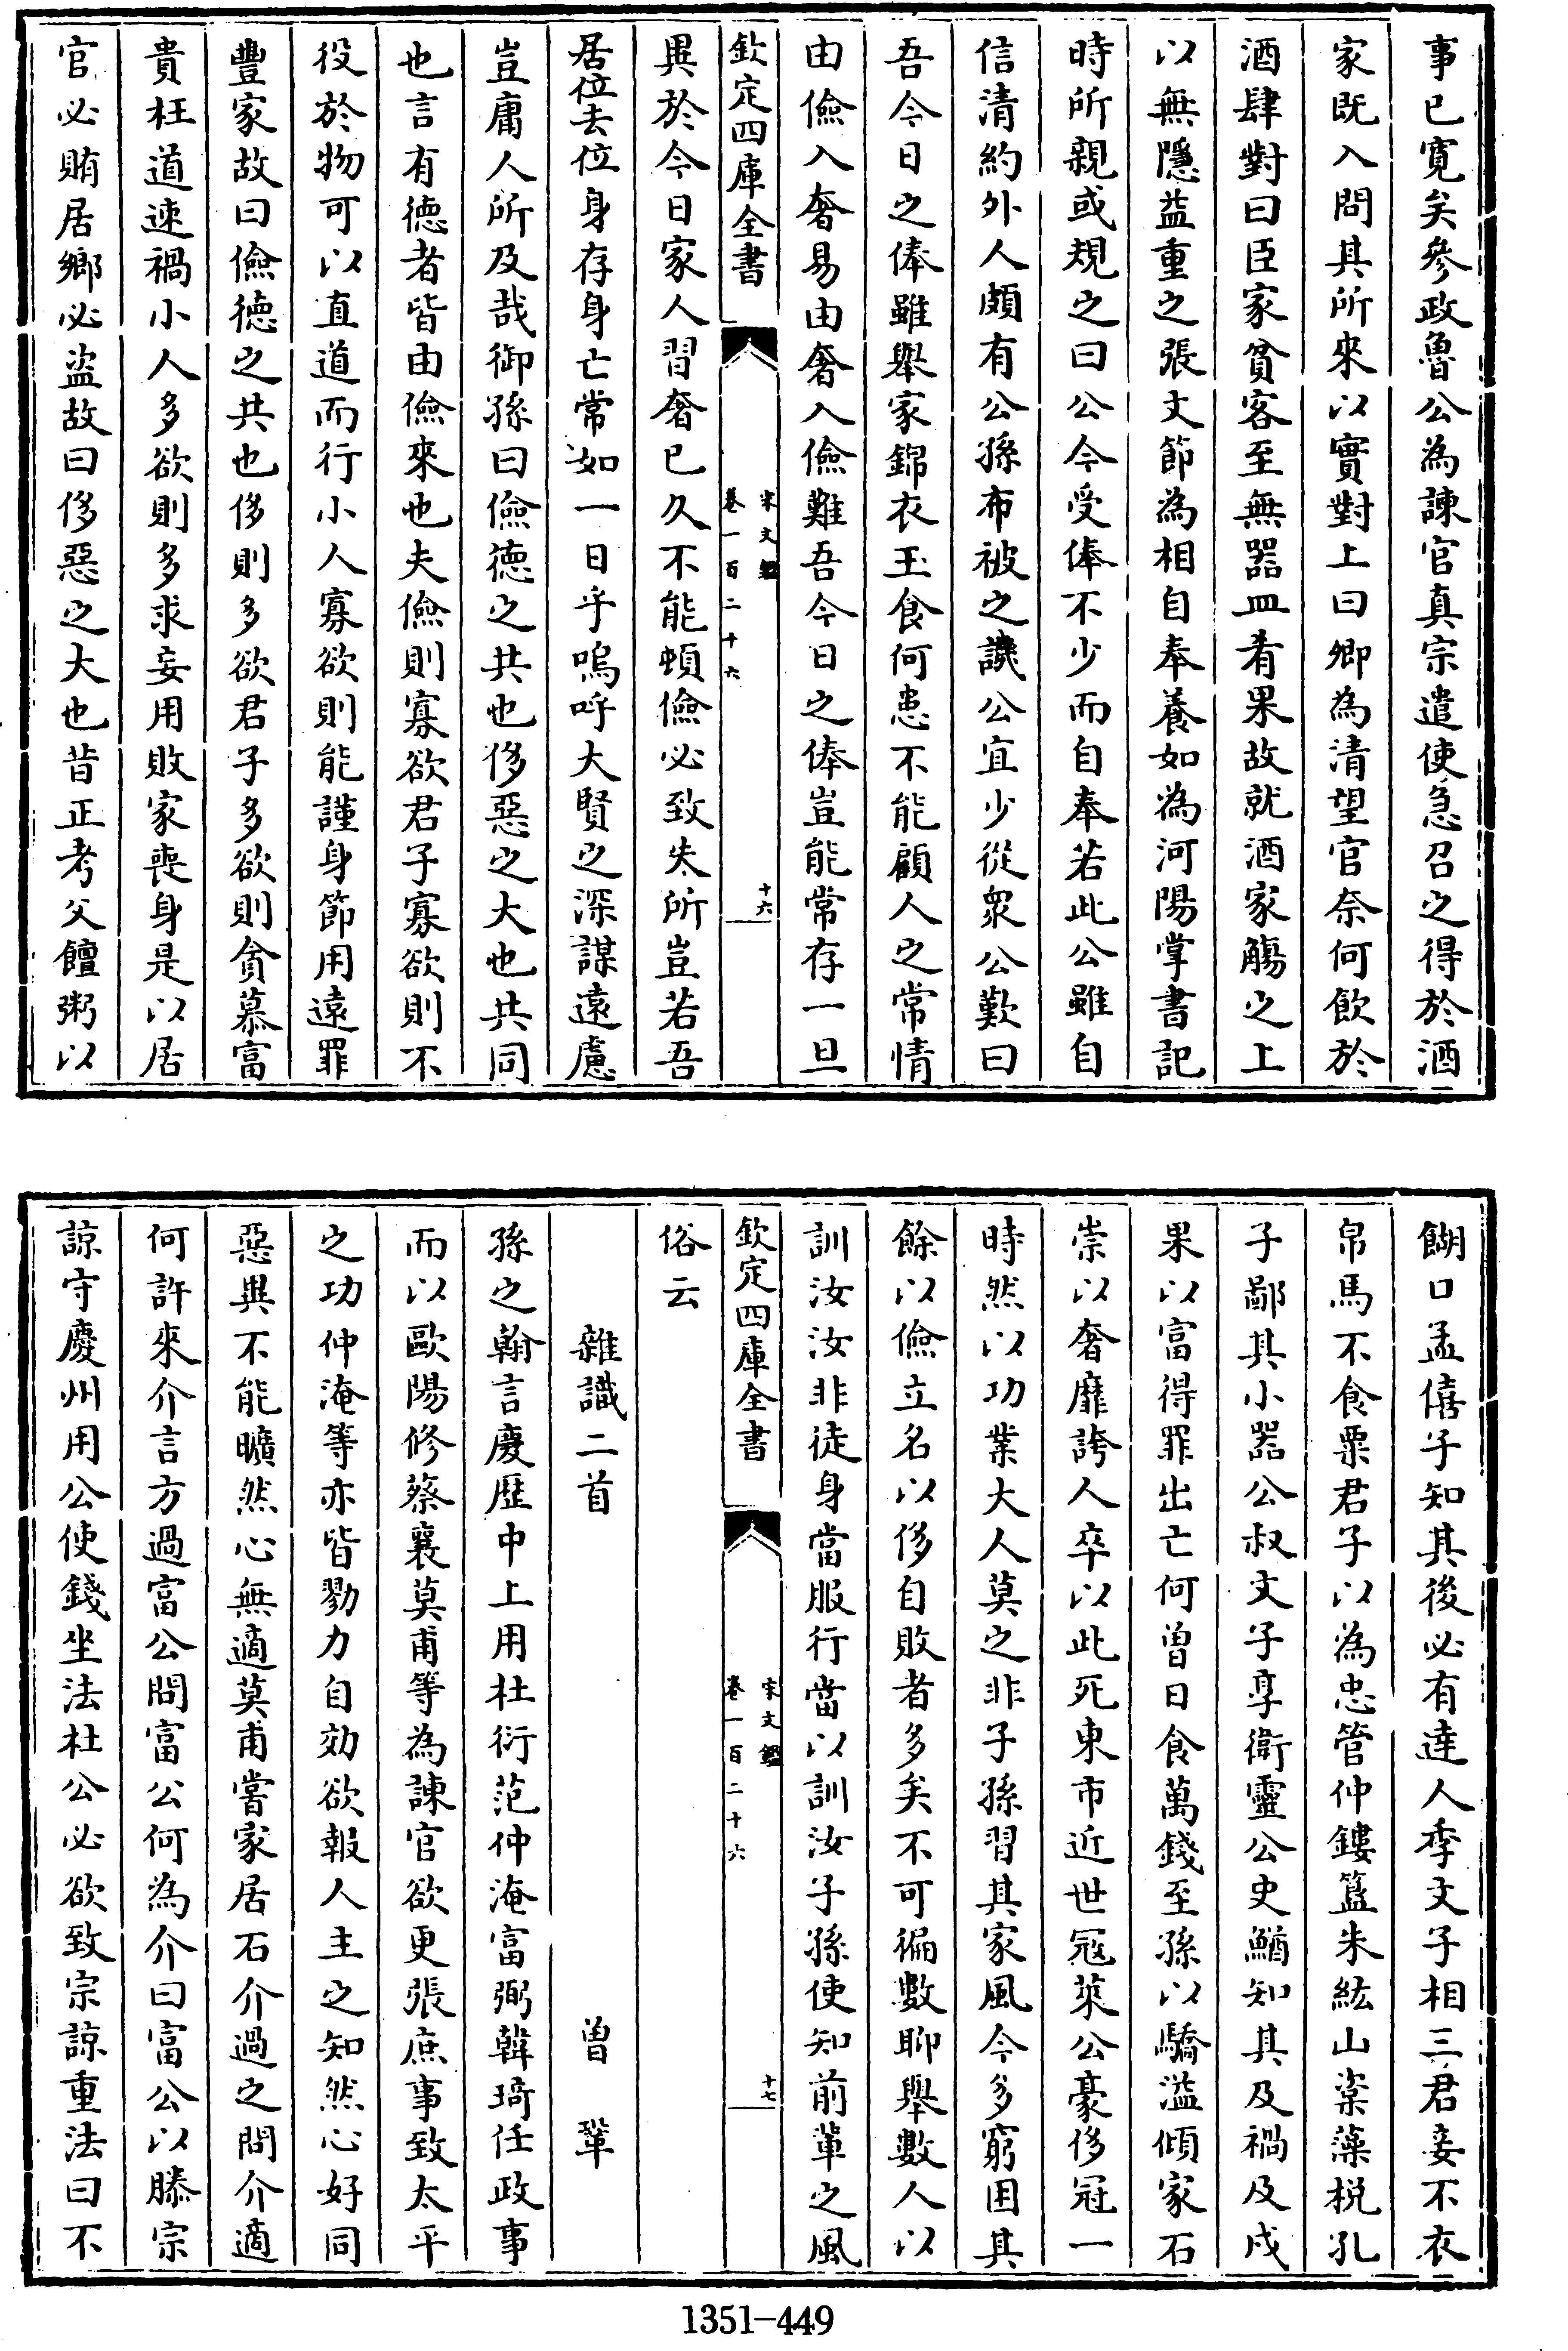 事已寛矣參政魯公為諫官真宗遣使急召之得於酒
家既入問其所來以實對上曰卿為清望官奈何飲於
酒肆對曰臣家貧客至無器皿肴果故就酒家觴之上
以無隱益重之張文節為相自奉養如為河陽掌書記
時所親或規之曰公今受俸不少而自奉若此公雖自
信清約外人頗有公孫布被之譏公宜少從衆公歎曰
吾今日之俸雖舉家錦衣玉食何患不能顧人之常情
由儉入奢易由奢入儉難吾今日之俸豈能常存一旦
欽定四庫全書
宋文鑑
卷一百二十六
十六
異於今日家人習奢已久不能頓儉必致失所豈若吾
居位去位身存身亡常如一日乎嗚呼大賢之深謀遠慮
豈庸人所及哉御孫曰儉德之共也侈惡之大也共同
也言有德者皆由儉來也夫儉則寡欲君子寡欲則不
役於物可以直道而行小人寡欲則能謹身節用遠罪
豐家故曰儉德之共也侈則多欲君子多欲則貪慕富
貴枉道速禍小人多欲則多求妄用敗家喪身是以居
官必賄居鄉必盜故曰侈惡之大也昔正考父饘粥以
餬口孟僖子知其後必有達人季文子相三君妾不衣
帛馬不食粟君子以為忠管仲鏤簋朱紘山楶藻梲孔
子鄙其小器公叔文子享衛靈公史鰌知其及禍及戌
果以富得罪出亡何曾日食萬錢至孫以驕溢傾家石
崇以奢靡誇人卒以此死東市近世冦萊公豪侈冠一
時然以功業大人莫之非子孫習其家風今多窮困其
餘以儉立名以侈自敗者多矣不可徧數聊舉數人以
訓汝汝非徒身當服行當以訓汝子孫使知前輩之風
欽定四庫全書
宋文鑑
卷一百二十六
十七
俗云
雜識二首 曾鞏
孫之翰言慶歷中上用杜衍范仲淹富弼韓琦任政事
而以歐陽修蔡襄莫甫等為諫官欲更張庶事致太平
之功仲淹等亦皆勠力自効欲報人主之知然心好同
惡異不能曠然心無適莫甫嘗家居石介過之問介適
何許來介言方過富公問富公何為介曰富公以滕宗
諒守慶州用公使錢坐法杜公必欲致宗諒重法曰不
1351-449